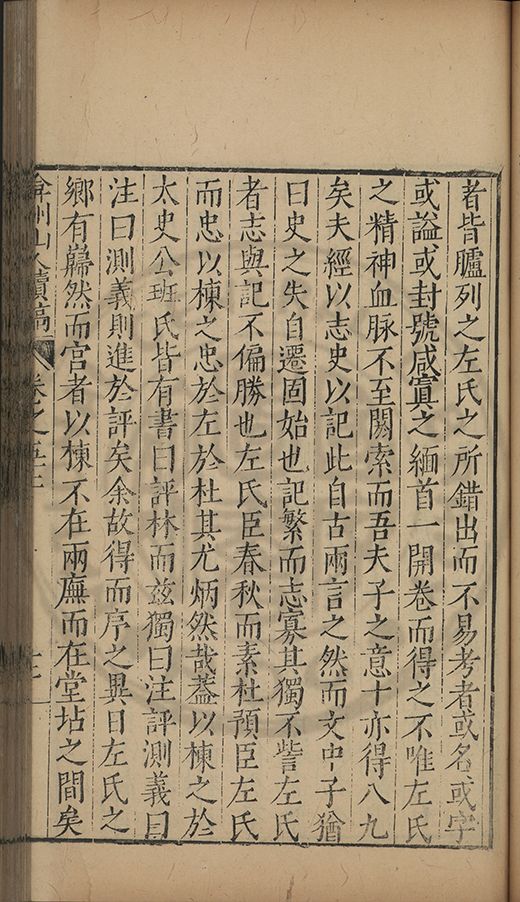 者皆臚列之左氏之所錯出而不易考者或名或字
或謚或封號咸寘之緬首一開卷而得之不唯左氏
之精神血脉不至闕索而吾夫子之意十亦得八九
矣夫經以志史以記此自古兩言之然而文中子猶
曰史之失自遷固始也記繁而志寡其獨不訾左氏
者志與記不偏勝也左氏臣春秋而素杜預臣左氏
而忠以棟之忠於左於杜其尤炳然哉蓋以棟之於
太史公班氏皆有書曰評林而茲獨曰注評測義曰
注曰測義則進於評矣余故得而序之異日左氏之
鄉有巋然而宫者以棟不在兩廡而在堂坫之間矣
弇州山人續稿 卷之五十